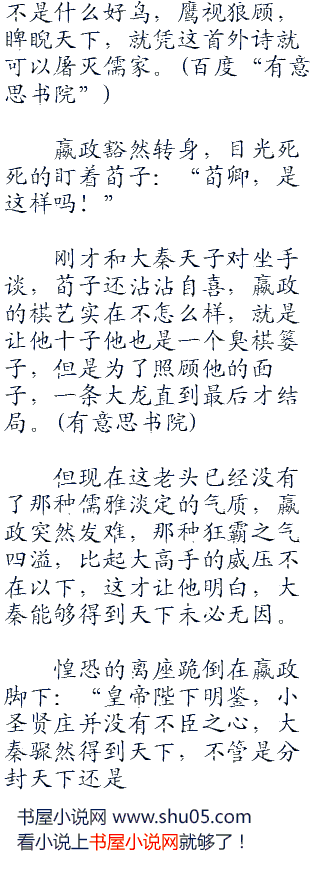 不是什么好鸟，鹰视狼顾，
睥睨天下，就凭这首外诗就
可以屠灭儒家。(百度“有意
思书院”)
嬴政豁然转身，目光死
死的盯着荀子：“荀卿，是
这样吗！”
刚才和大秦天子对坐手
谈，荀子还沾沾自喜，嬴政
的棋艺实在不怎么样，就是
让他十子他也是一个臭棋篓
子，但是为了照顾他的面
子，一条大龙直到最后才结
局。(有意思书院)
但现在这老头已经没有
了那种儒雅淡定的气质，嬴
政突然发难，那种狂霸之气
四溢，比起大高手的威压不
在以下，这才让他明白，大
秦能够得到天下未必无因。
惶恐的离座跪倒在嬴政
脚下：“皇帝陛下明鉴，小
圣贤庄并没有不臣之心，大
秦骤然得到天下，不管是分
封天下还是
书屋小说网 www.shu05.com
看小说上书屋小说网就够了！